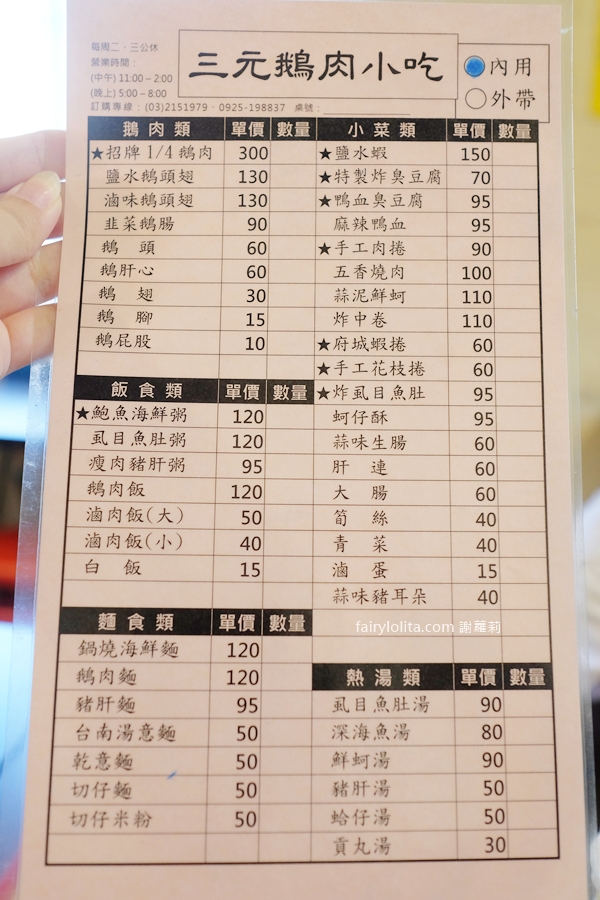 每周二、三公休
營業時間：
(中午) 11:00－2:00
(晚上) 5:00－8:00
訂購專線：(03)2151979．0925-198837 桌號：
三元鵝肉小吃
內用
外帶
鵝肉類 單價 數量
★招牌1/4鵝肉 300
鹽水鵝頭翅 130
滷味鵝頭翅 130
韭菜鵝腸 90
鵝頭 60
鵝肝心 60
鵝翅 30
鵝腳 15
鵝屁股 10
飯食類 單價 數量
★鮑魚海鮮粥 120
虱目魚肚粥 120
瘦肉豬肝粥 95
鵝肉飯 120
滷肉飯(大) 50
滷肉飯(小) 40
白飯 15
麵食類 單價 數量
鍋燒海鮮麵 120
鵝肉麵 120
豬肝麵 95
台南湯意麵 50
乾意麵 50
切仔麵 50
切仔米粉 50
小菜類 單價 數量
★鹽水蝦 150
★特製炸臭豆腐 70
★鴨血臭豆腐 95
麻辣鴨血 95
★手工肉捲 90
五香燒肉 100
蒜泥鮮蚵 110
炸中卷 110
★府城蝦捲 60
★手工花枝捲 60
★炸虱目魚肚 95
蚵仔酥 95
蒜味生腸 60
肝連 60
大腸 60
筍絲 40
青菜 40
滷蛋 15
蒜味豬耳朵 40
fairylolita.com 謝蘿莉
熱湯類 單價 數量
虱目魚肚湯 90
深海魚湯 80
鮮蚵湯 90
豬肝湯 50
蛤仔湯 50
貢丸湯 30